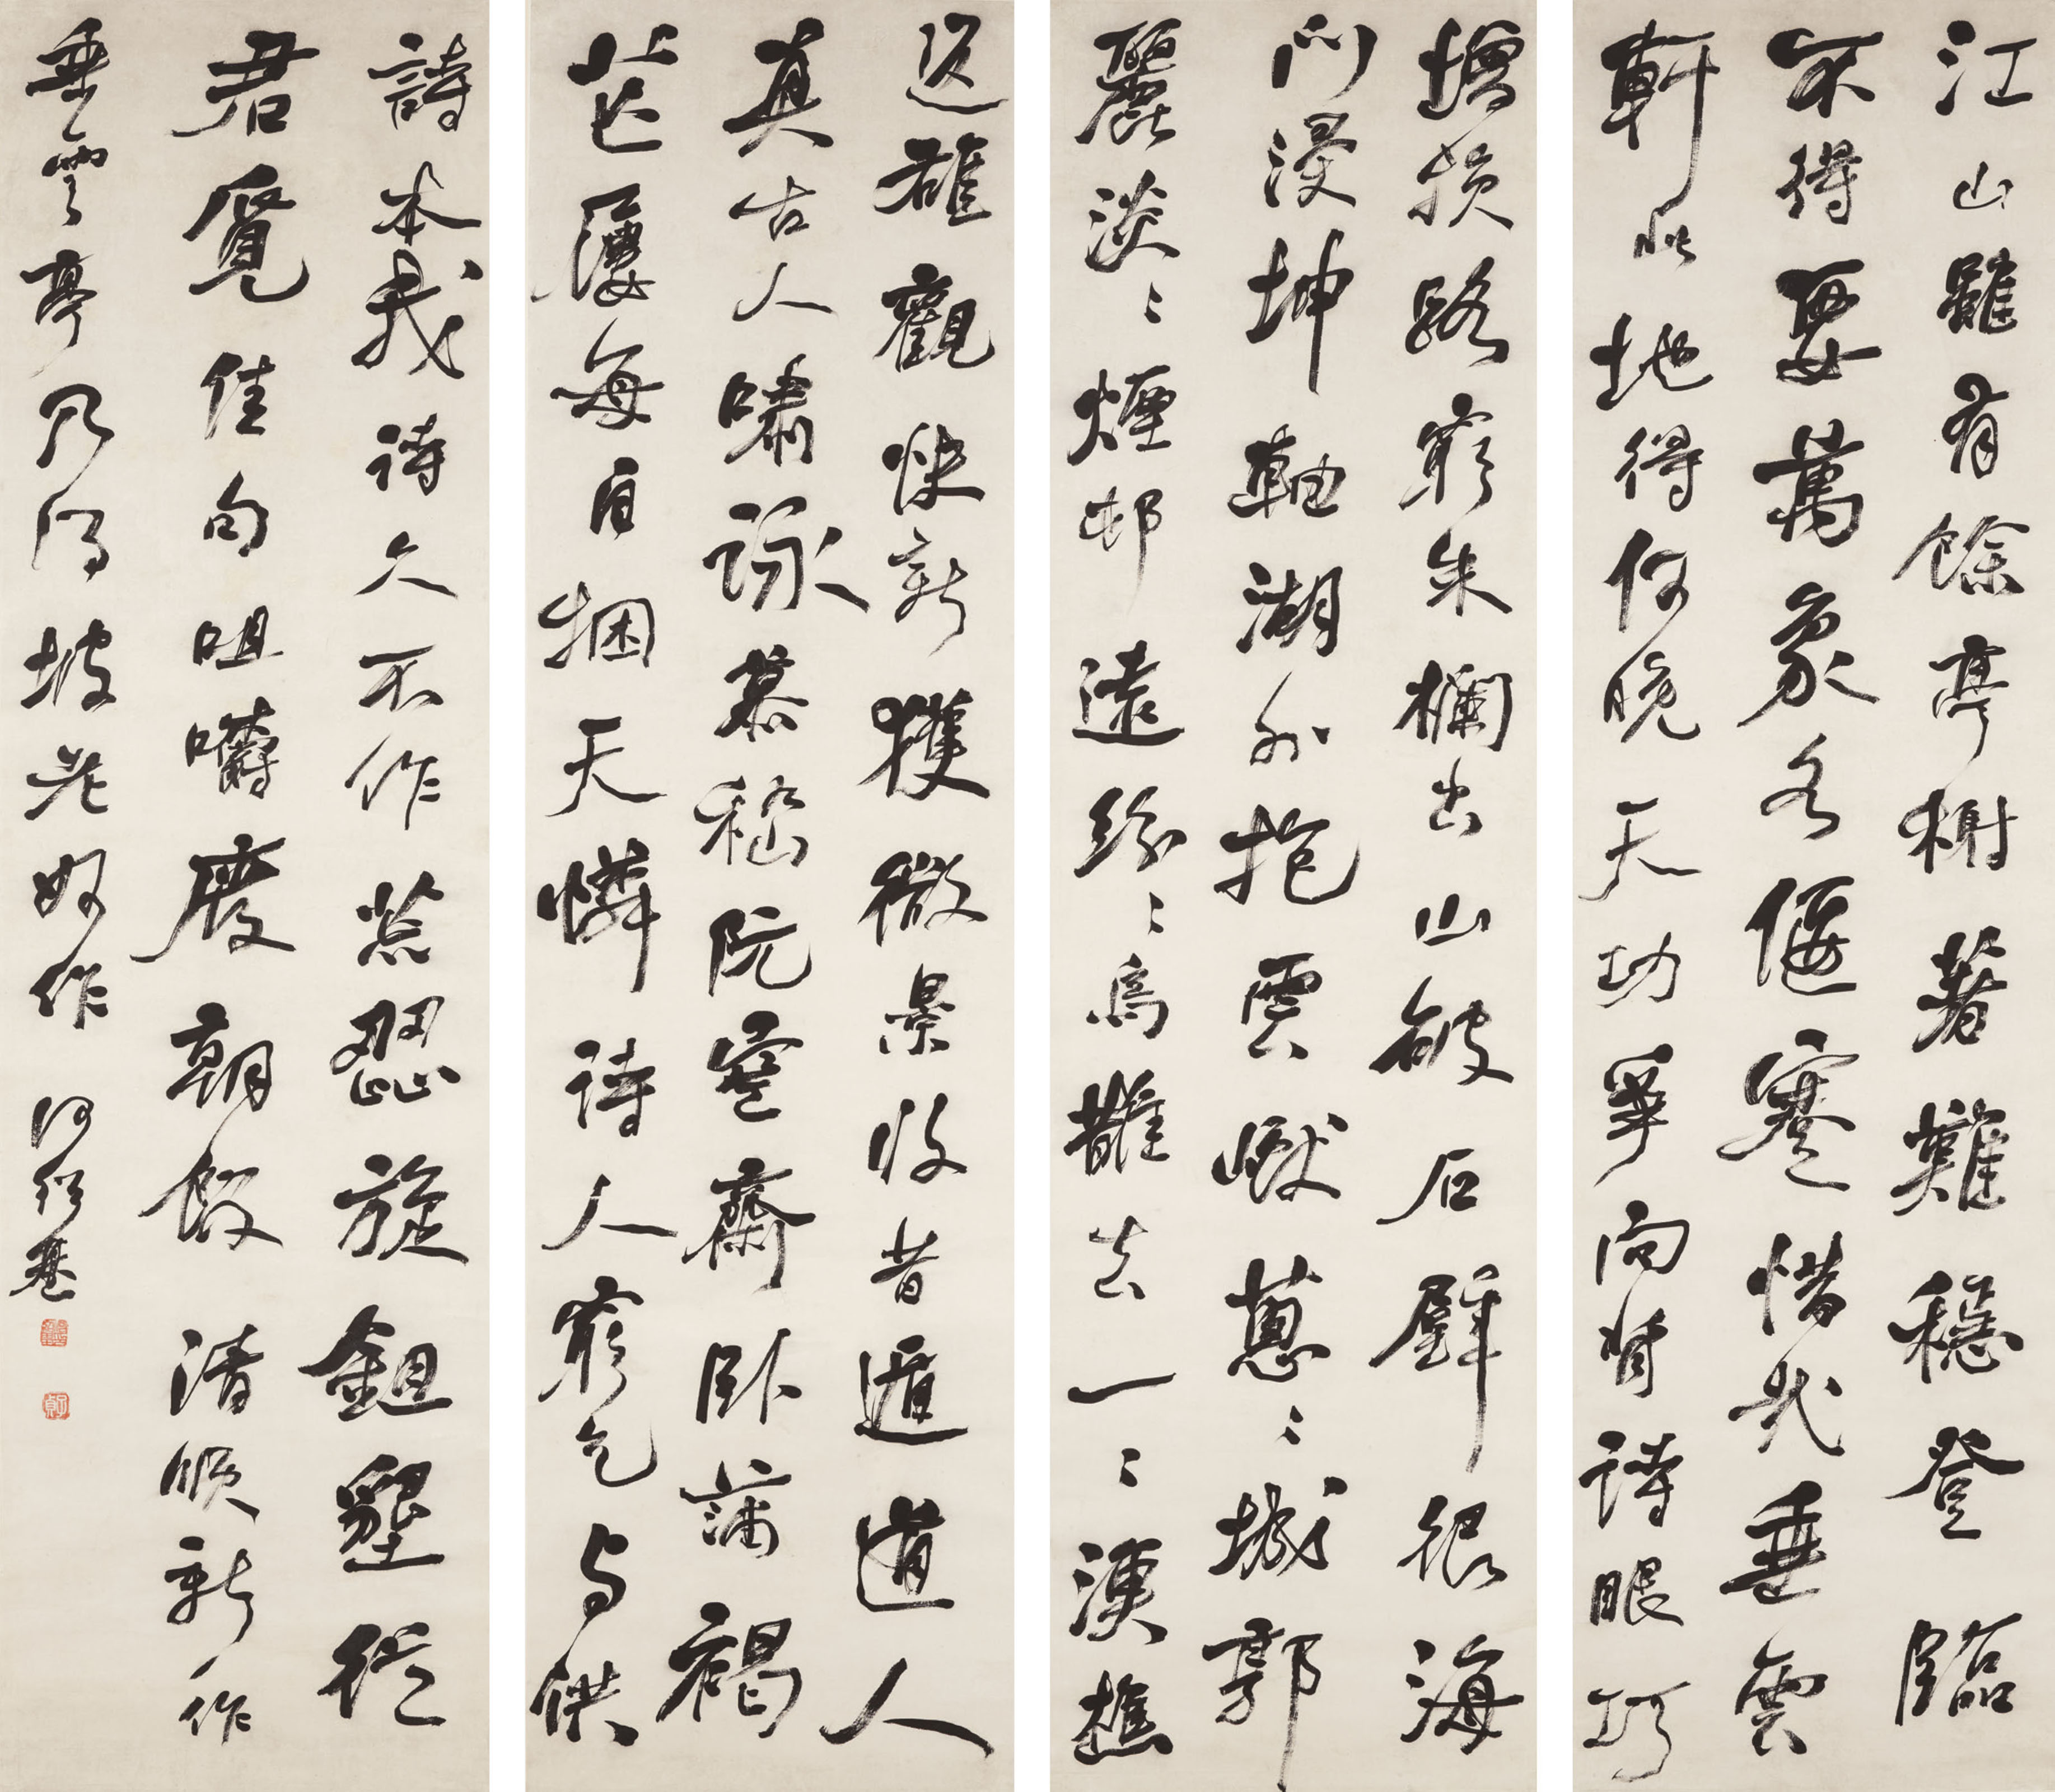 江山雖有餘亭榭著難穩登臨
不得要萬象各偃蹇惜哉垂雲
軒此地得何晚天功爭向背詩眼巧
增損路窮朱欄出山破石壁很海
門浸坤軸湖外抱雲巘蔥〻城郭
麗淡〻煙邨遠紛〻烏鵲去一〻漁樵
返雄觀快新獲微景收昔遁道人
真古人嘯詠慕嵇阮空齋臥蒲褐
芒屨每自捆天憐詩人窮乞与供
詩本我詩久不作荒澀旋鉏墾從
君覓佳句咀嚼廢朝飯清順新作
垂雲亭乃得坡老好作 何紹基